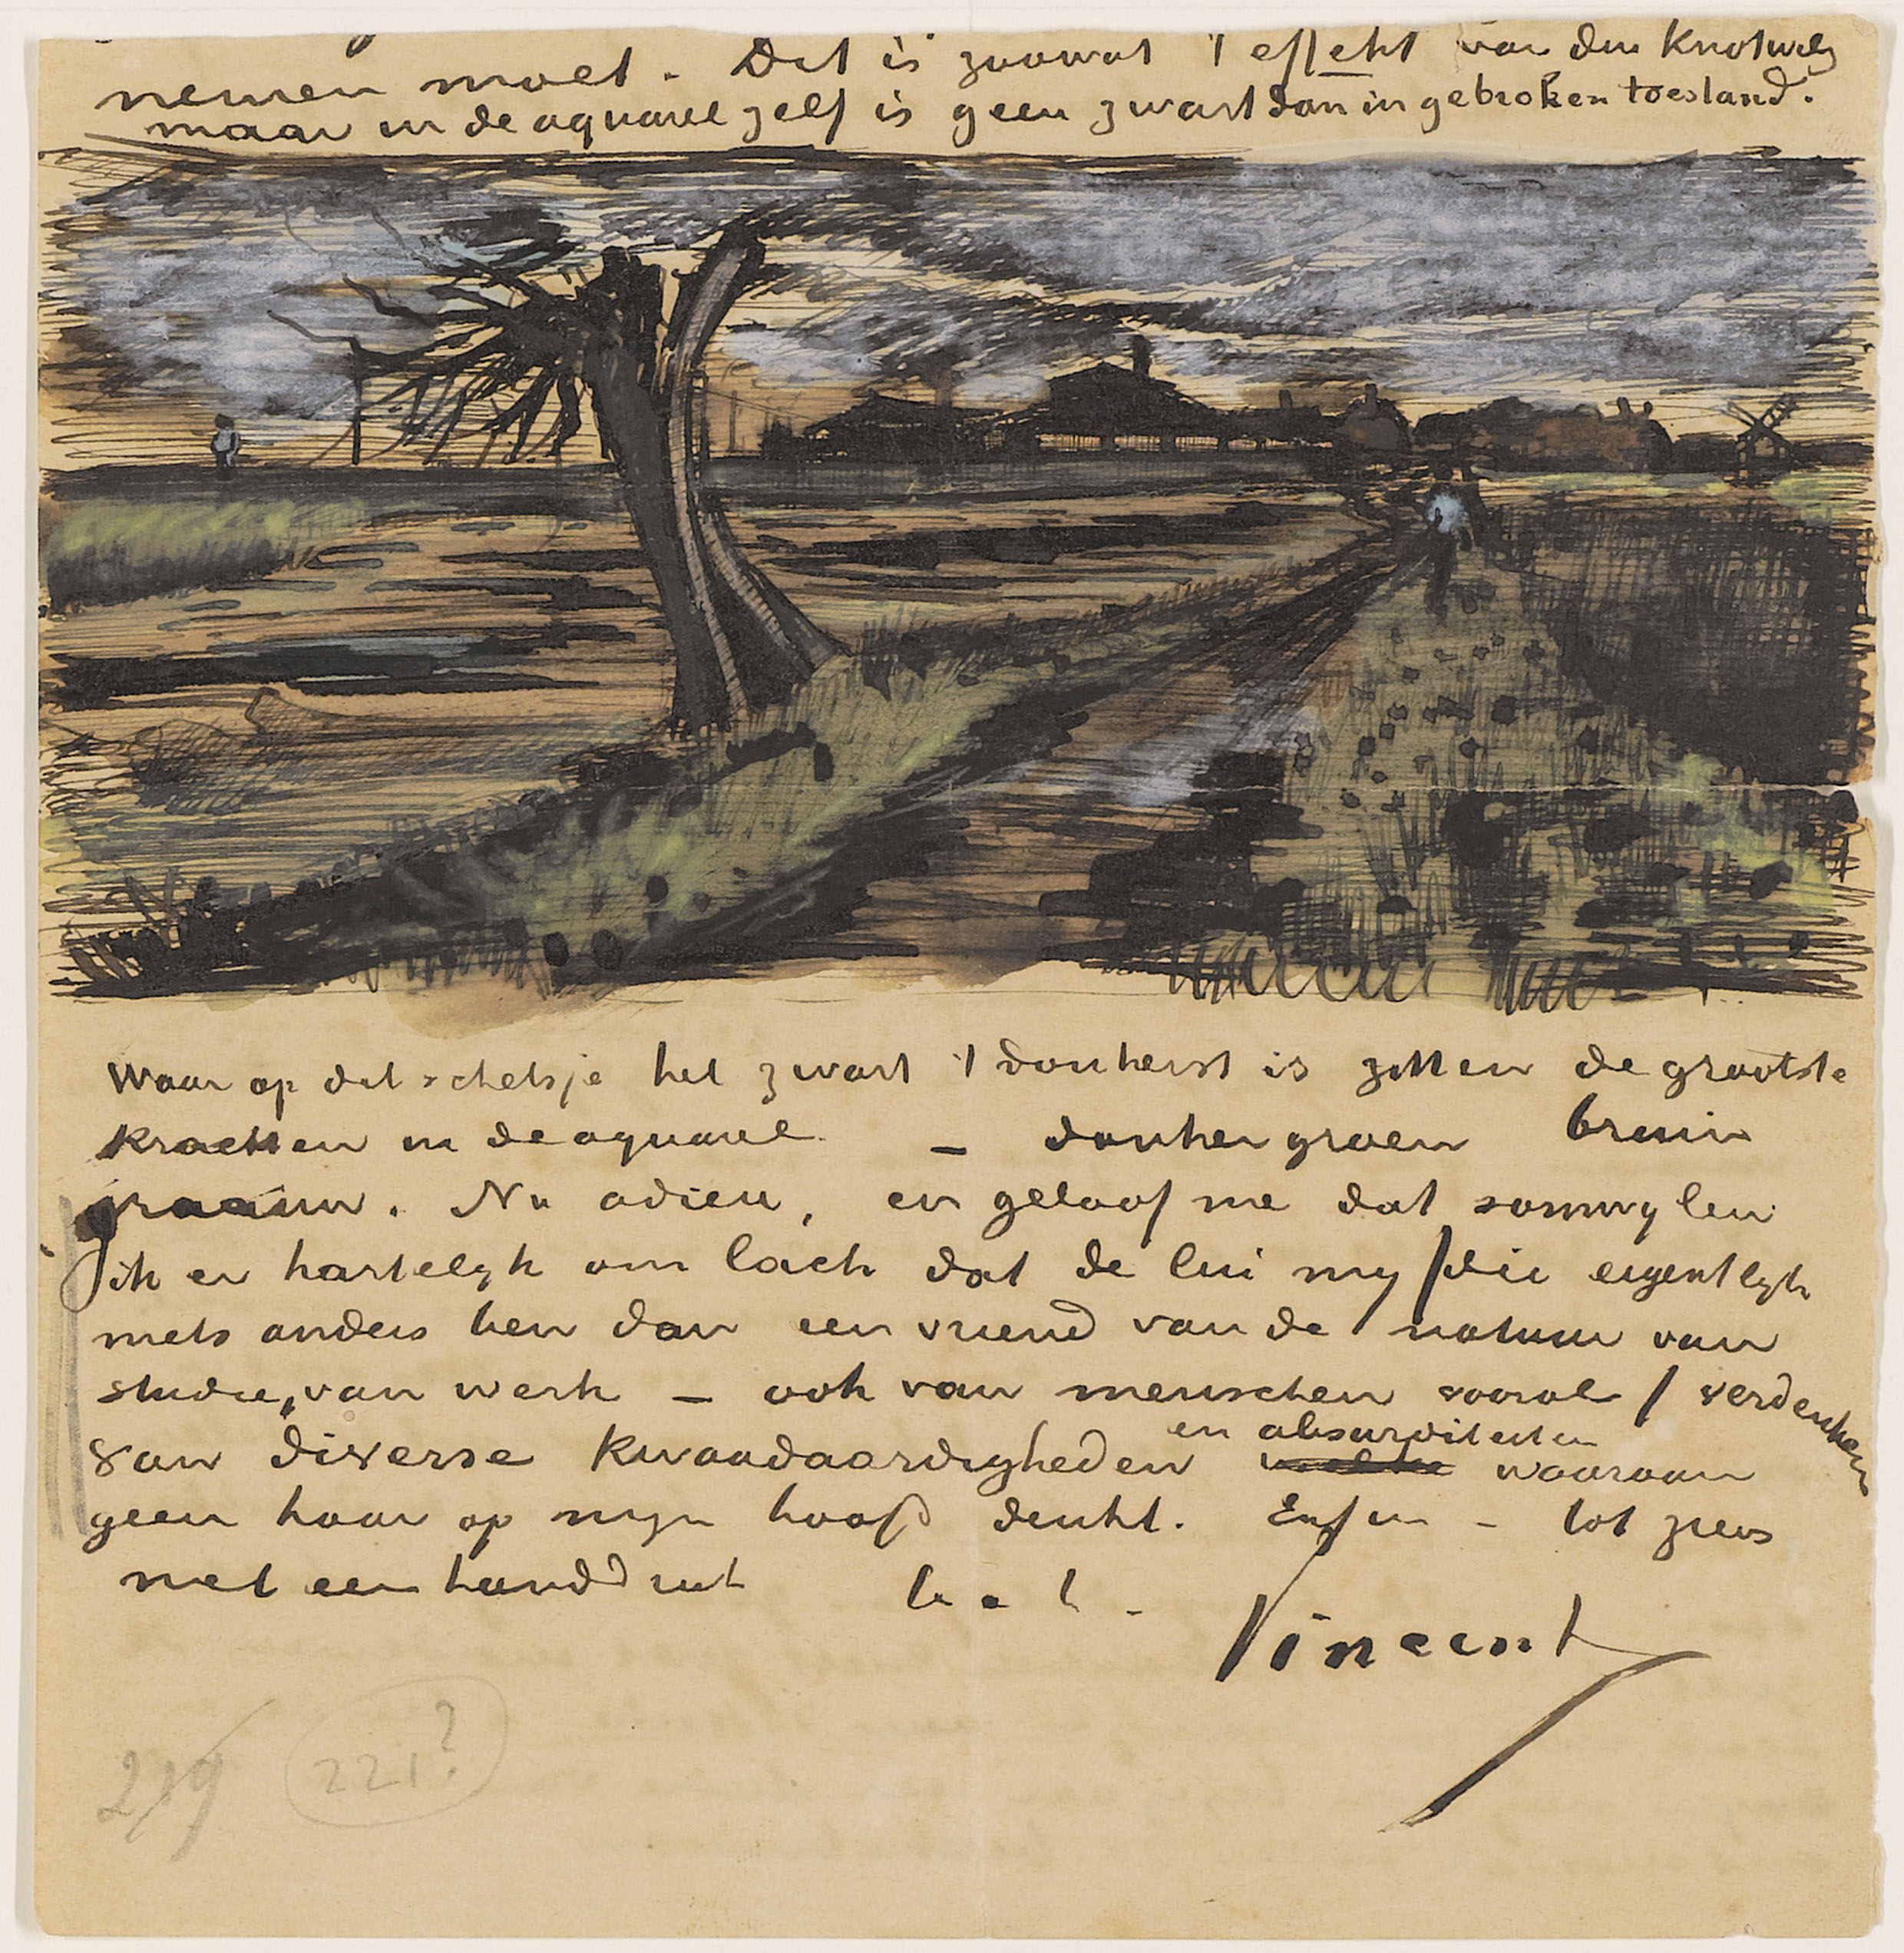 nemen moet. Dit is zoowat 't effekt van den Knotwilg
maar in de aquarel zelf is geen zwart dan in gebroken toestand.
Waar op dit schetsje het zwart 't donkerst is zitten de grootste
krachten in de aquarel – donkergroen bruin
graauw. Nu adieu, en geloof me dat somwylen
ik er hartelyk om lach dat de lui my /die eigentlyk
niets anders ben dan een vriend van de natuur van
studie, van werk – ook van menschen vooral/ verdenken
van diverse kwaadaardigheden en absurditeiten waaraan
geen haar op myn hoofd denkt. Enfin – tot ziens
met een handdruk t. à. t.
Vincent
219
221?